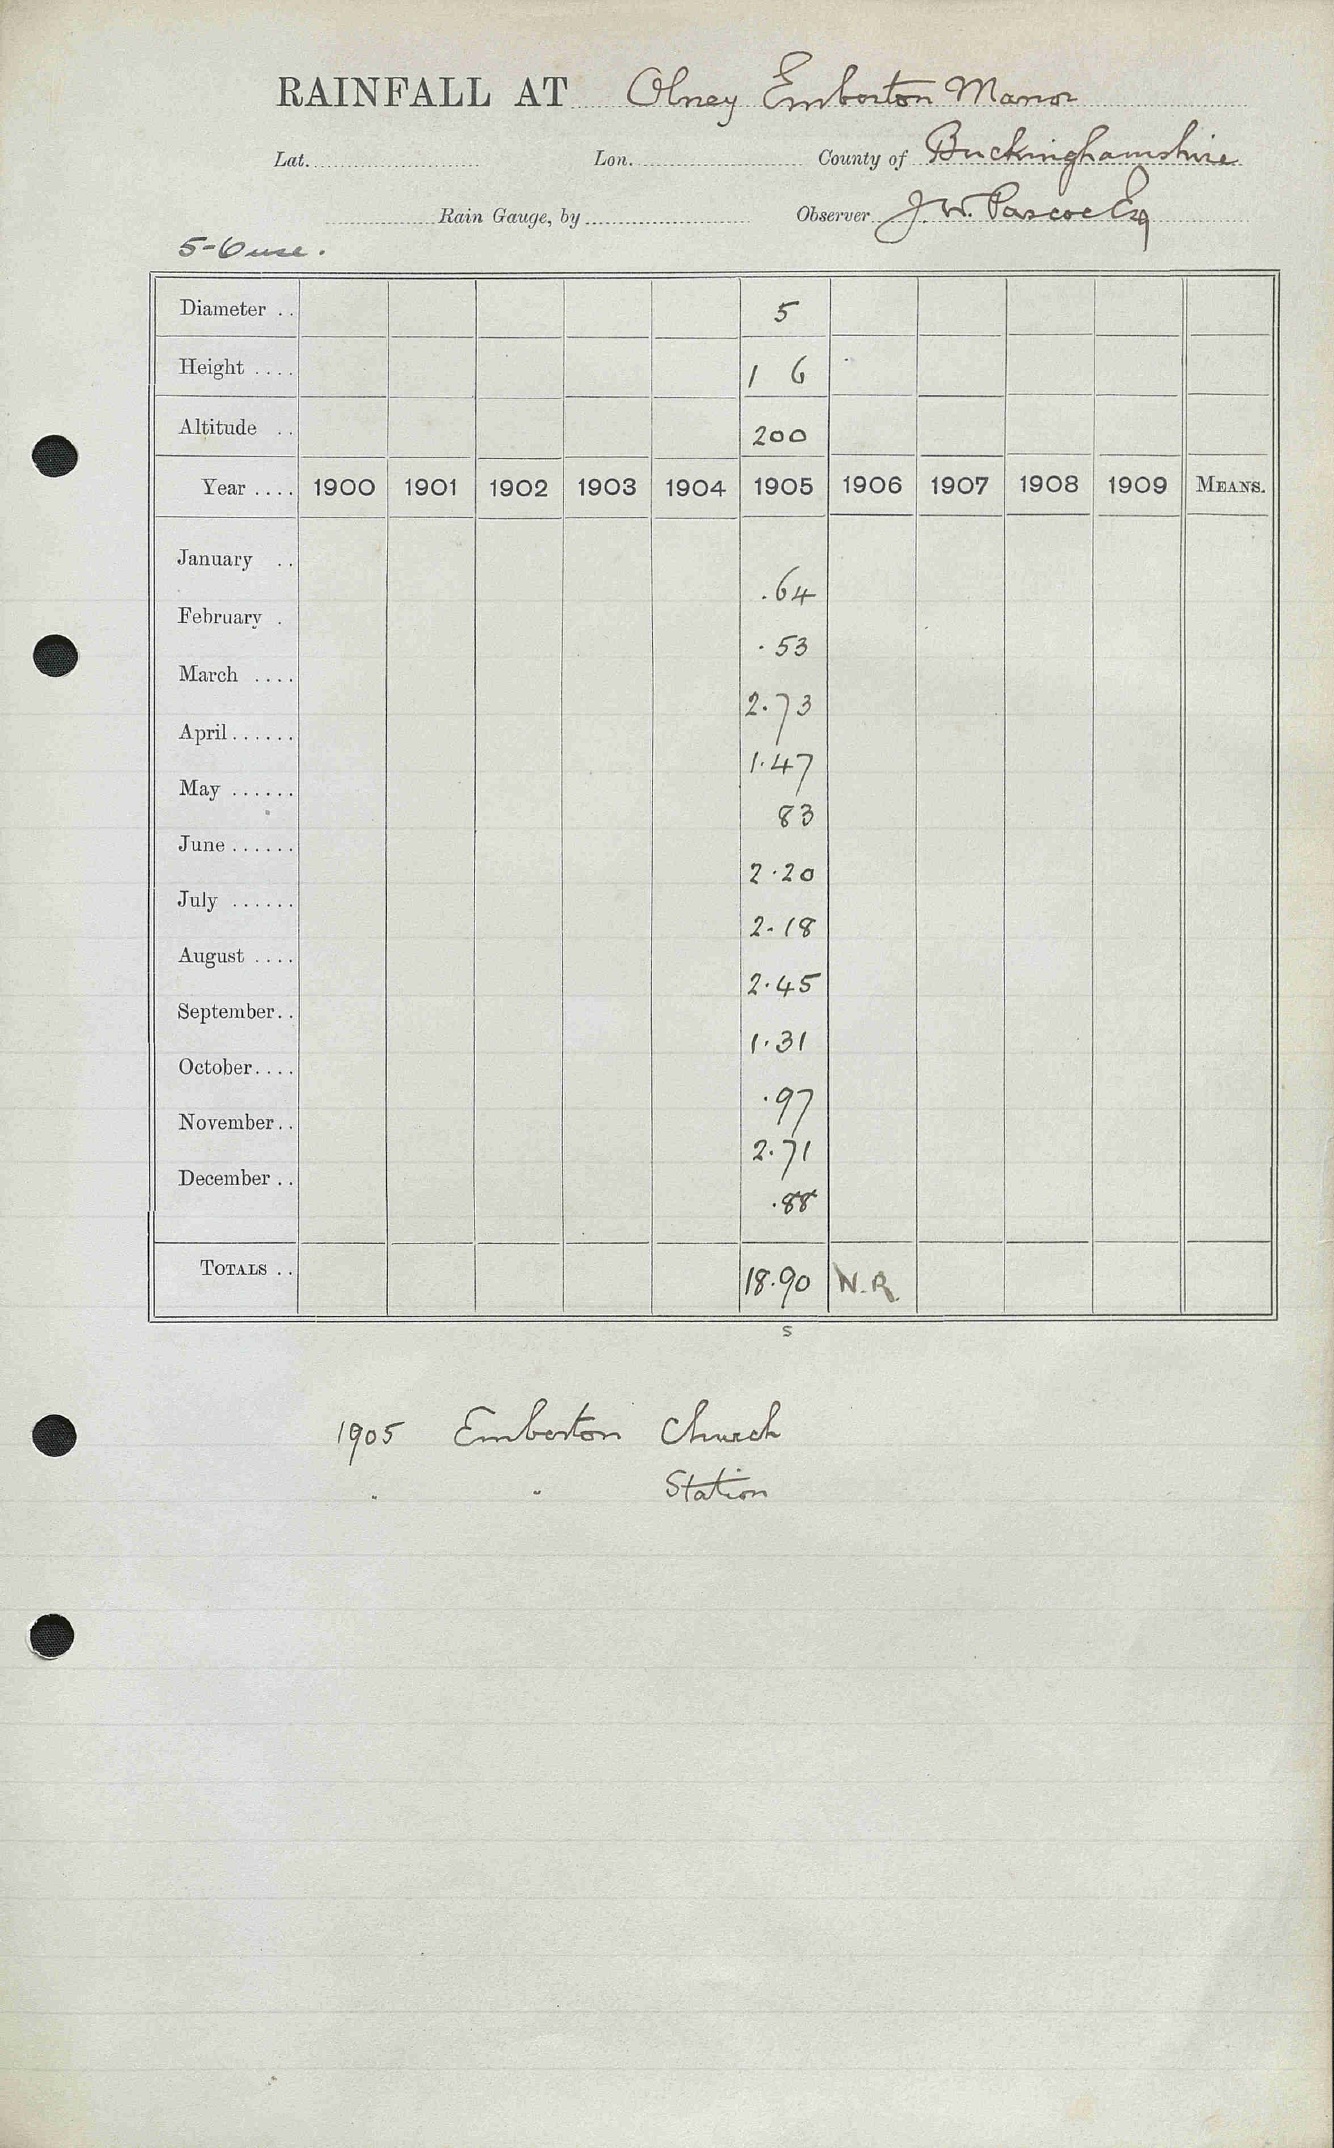 RAINFALL AT Olney Emberton Manor
Lat. Lon. County of Buckinghamshire
Rain Gauge, by Observer J. W. Pascoe Esq
5-Ouse.
Diameter .. 5
Height .... 1 6
Altitude .. 200
Year .... 1900 1901 1902 1903 1904 1905 1906 1907 1908 1909 MEANS.
January .. .64
February . .53
March .... 2.73
April ...... 1.47
May ...... 83
June ...... 2.20
July ...... 2.18
August .... 2.45
September.. 1.31
October.... .97
November.. 2.71
December .. .88
TOTALS .. 18.90 N.R.
s
1905 Emberton Church
" " Station